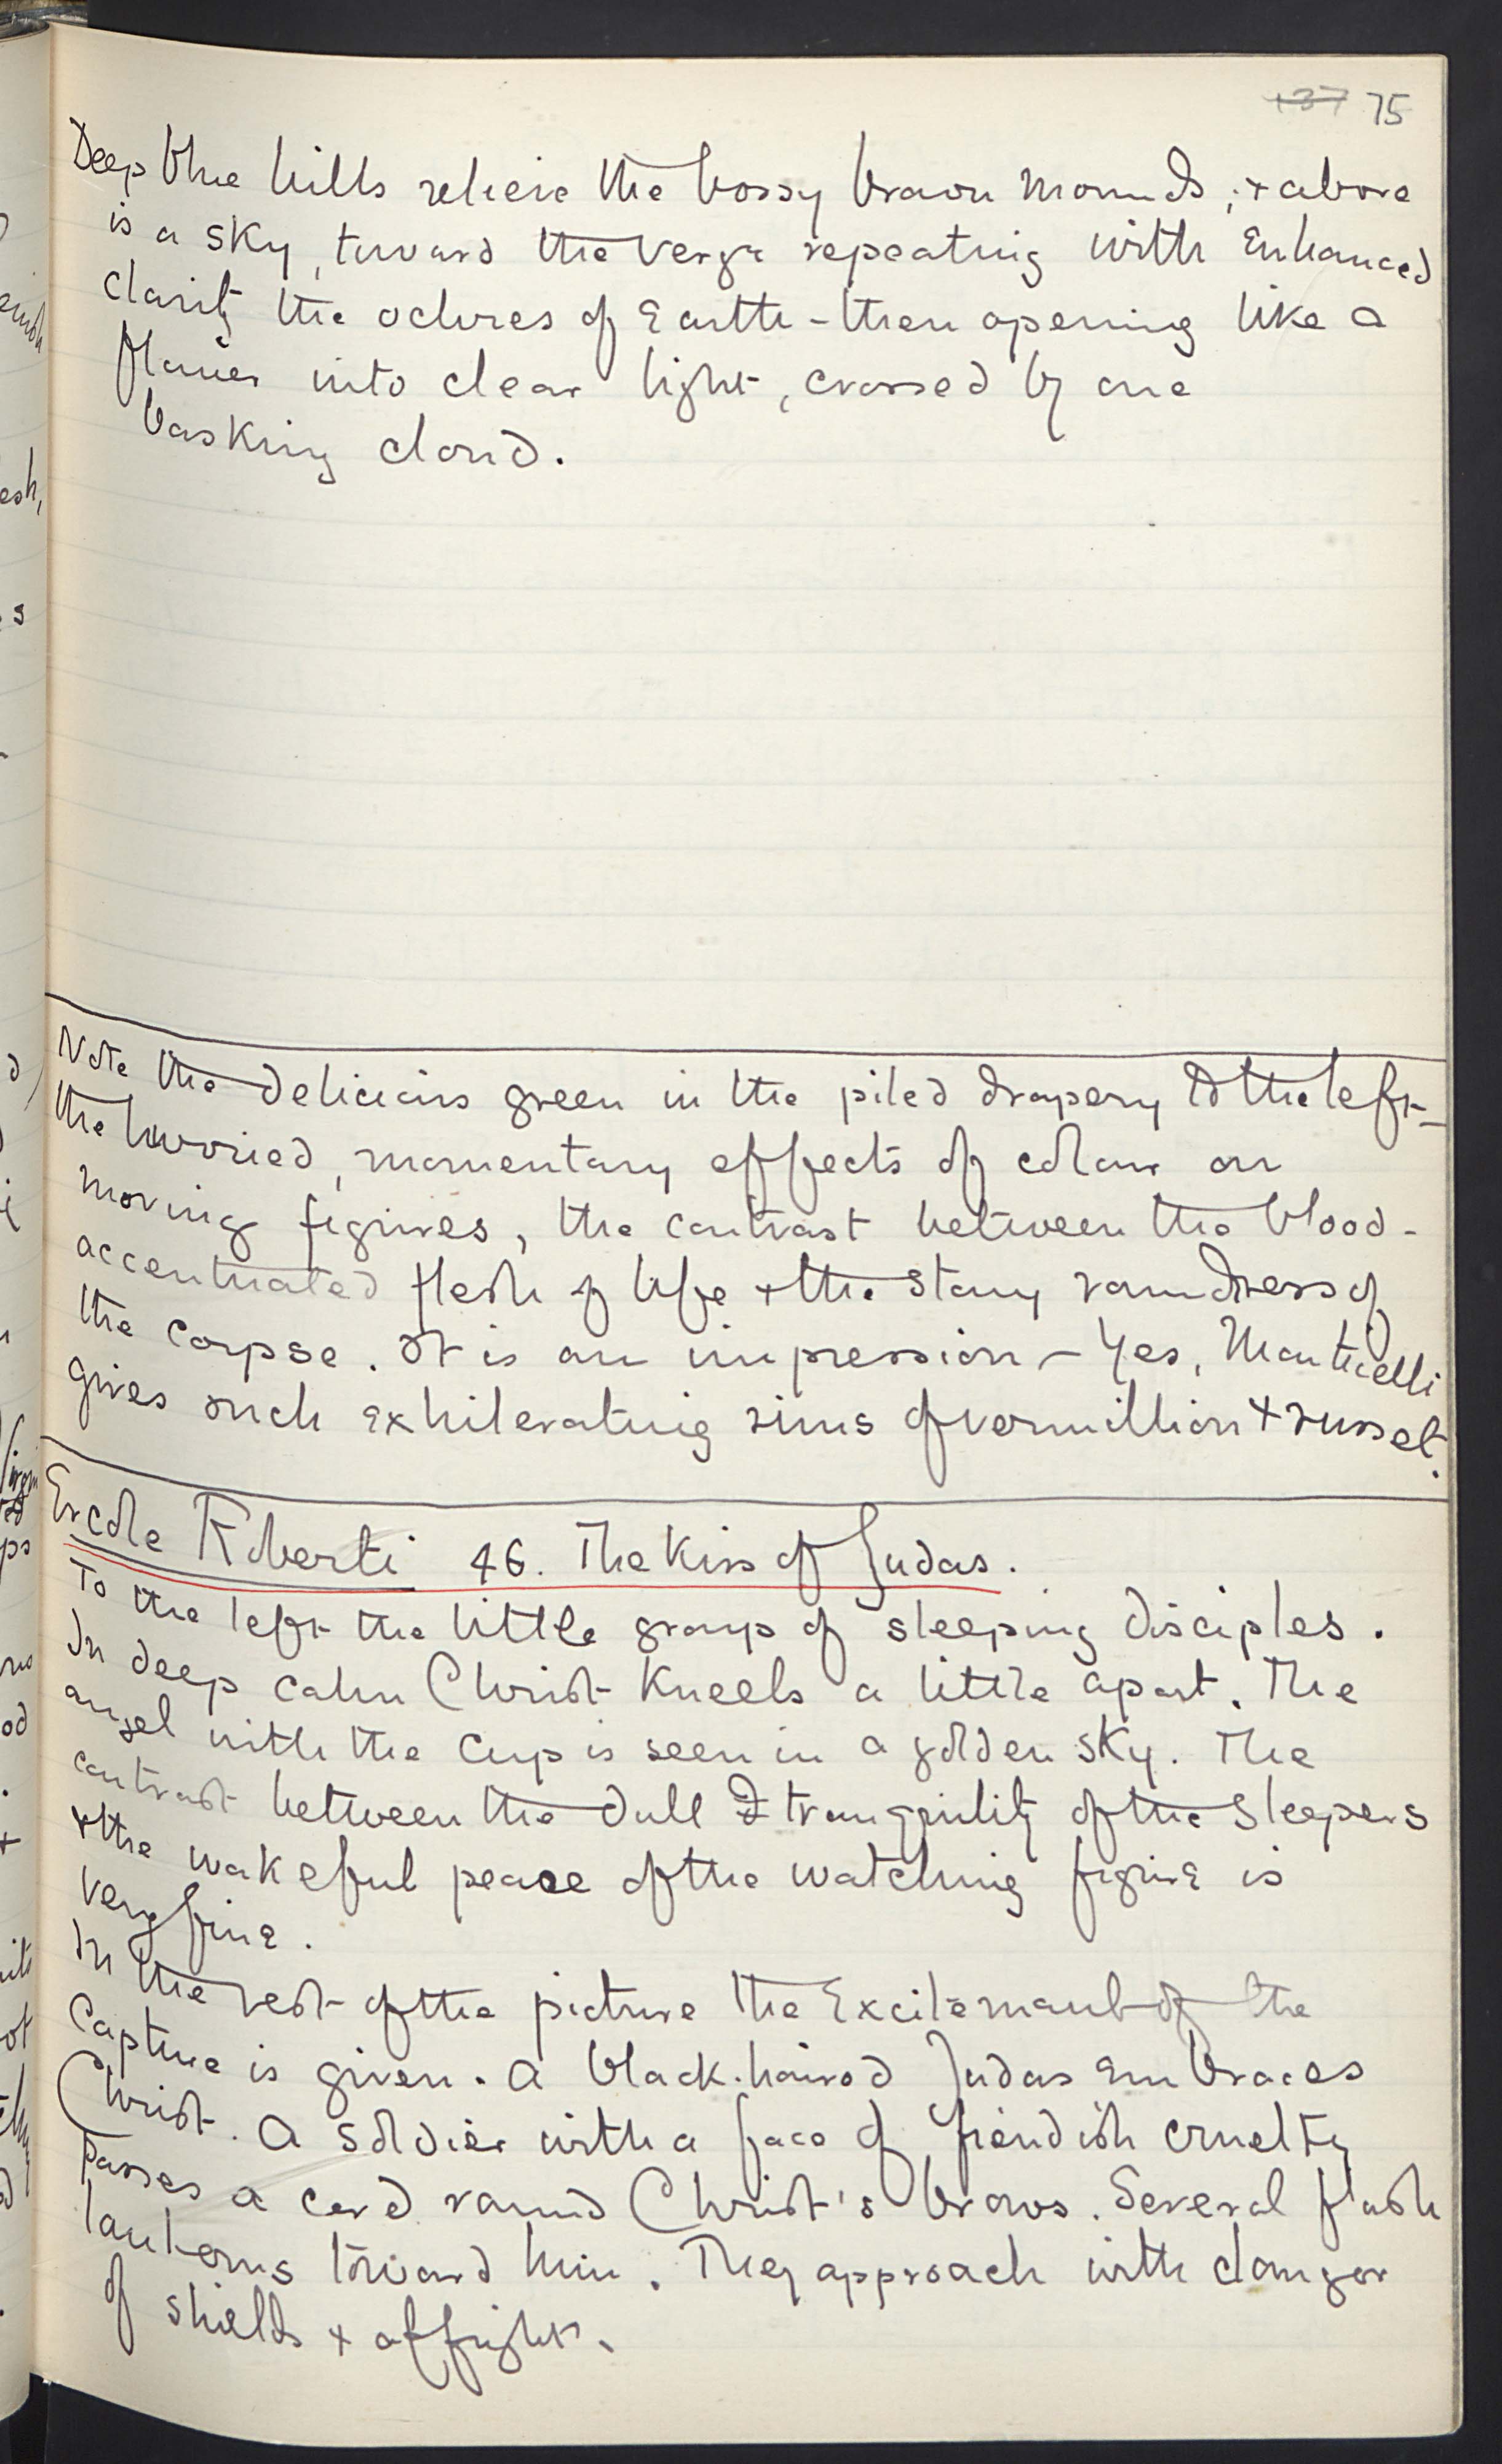 137 75
Deep blue hills relieve the bossy brown mounds, & above
is a sky, toward the verge repeating with enhanced
clarity the ochres of Earth - then opening like a
flower into clear light, crossed by one
basking cloud.
Note the delicious green in the piled drapery to the left -
the hurried, momentary effects of colour on
moving figures, the contrast between the blood-
accentuated flesh of life & the stony roundness of
the corpse. It is an impression - Yes, Monticelli
gives such exhilerating rims of vermillion & russet.
Ercole Roberti 46. The Kiss of Judas.
To the left the little group of sleeping disciples.
In deep calm Christ kneels a little apart. The
angel with the cup is seen in a golden sky. The
contrast between the dull tranquility of the sleepers
& the wakeful peace of the watching figure is
very fine.
In the rest of the picture the Excitement of the
Capture is given. A black-haired Judas embraces
Christ. A soldier with a face of fiendish cruelty
passes a cord round Christ's brows. Several flash
lanterns toward him. They approach with clangor
of shields & affright.